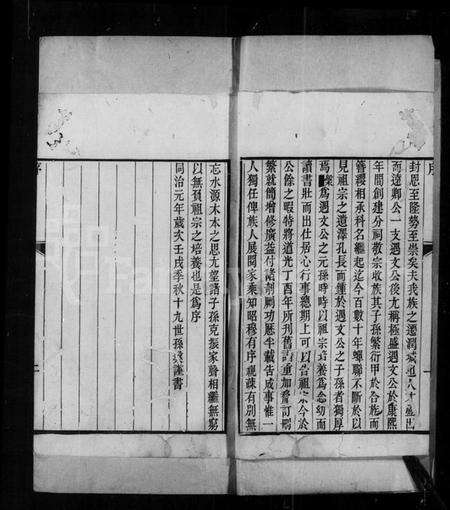 序
封恩至隆勢至崇矣夫我族之遷潤城也人才輩出
而遠卿公一支遇文公後尤稱極盛遇文公於康熙
年間創建分祠敬宗收族其子孫繁衍甲於合族而
簪纓相承科名繼起迄今百數十年蟬聯不斷於以
見祖宗之遺澤孔長而鍾於遇文公之子孫者獨厚
焉 為遇文公之元孫時時以祖宗培養為念幼而
讀書壯而出仕居心行事總期上可以告祖宗今於
公餘之暇特將道光丁酉年所刊舊譜重加釐訂刪
繁就簡增修廣益付諸剞劂功歷半載告成事惟一
人獨任俾族人展閱家乘知昭穆有序親疎有別無
忘水源木本之思尤望諸子孫克振家聲相繼無窮
以無負祖宗之培養也是為序
同治元年歲次壬戌季秋十九世孫 謹書
序
二